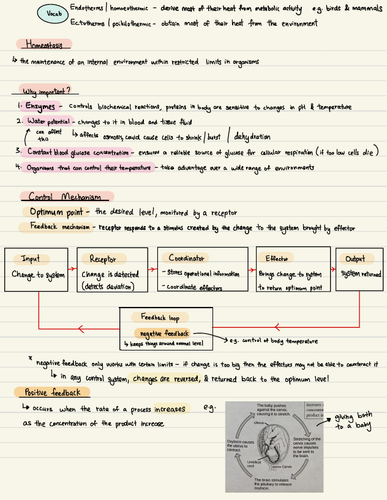 Vocab
Endotherms / homeothermic - derive most of their heat from metabolic activity e.g. birds & mammals
Ectotherms / poikilothermic - obtain most of their heat from the environment
Homeostasis
↳ the maintenance of an internal environment within restricted limits in organisms
Why important?
1. Enzymes - controls biochemical reactions, proteins in body are sensitive to changes in pH & temperature
2. Water potential - changes to it in blood and tissue fluid
can affect this
↳ affects osmosis, could cause cells to shrink / burst / dehydration
3. Constant blood glucose concentration - ensures a reliable source of glucose for cellular respiration (if too low cells die)
4. Organisms that can control their temperature - take advantage over a wide range of environments
Control Mechanism
Optimum point - the desired level, monitored by a receptor
Feedback mechanism - receptor responds to a stimulus created by the change to the system brought by effector
Input
Change to system
Receptor
Change is detected
(detects deviation)
Coordinator
- stores operational information
- coordinate effectors
Effector
Brings change to system
to return optimum point
Output
system returned
Feedback loop
negative feedback
↳ keeps things around normal level
e.g. control of body temperature
* negative feedback only works with certain limits - if change is too big then the effectors may not be able to counteract it
↳ in any control system, changes are reversed, & returned back to the optimum level
Positive feedback
↳ occurs when the rate of a process increases e.g.
as the concentration of the product increase
The baby pushes
against the cervix,
causing it to stretch.
Stretching of the
cervix causes
nerve impulses
to be sent to
the brain.
The brain stimulates
the pituitary to release
oxytocin.
Oxytocin causes
the uterus to
contract.
Uterus
Umbilical
cord
Cervix
giving birth
to a baby